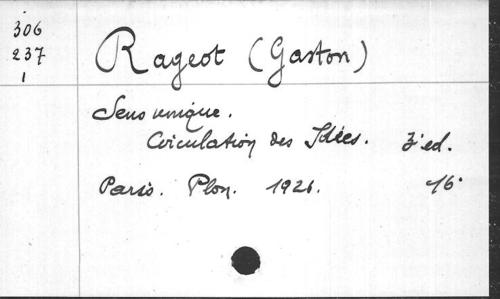 306
237
1
Rageot (Gaston)
Sens unique.
Circulation des Idées. 3ᵉ ed.
Paris. Plon. 1926. 16°